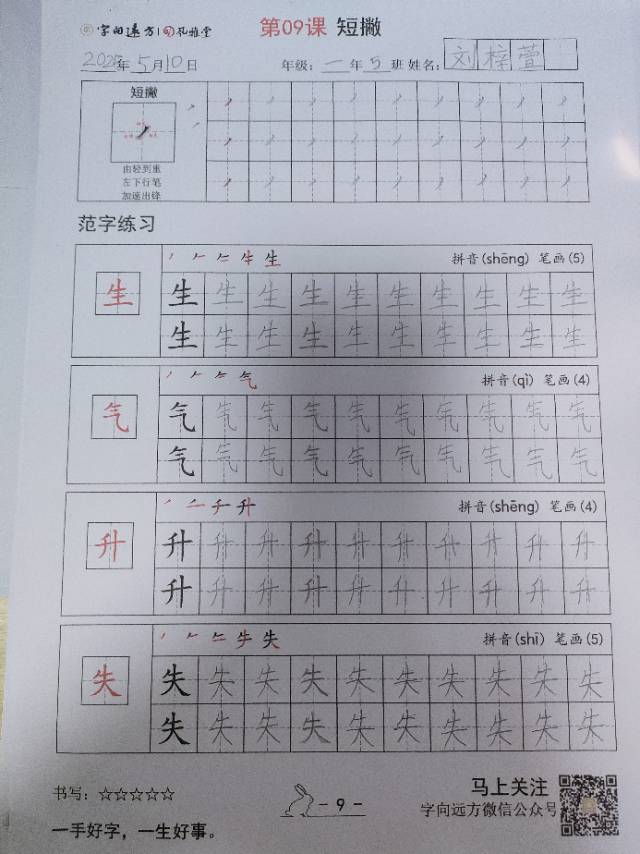 字向远方 孔雅堂 第09课 短撇
2025年5月10日 年级：一年5班 姓名：刘梓萱
短撇
由轻到重
左下行笔
加速出锋
范字练习
生 拼音(shēng) 笔画(5)
生 生 生 生 生 生 生 生 生 生 生
生 生 生 生 生 生 生 生 生 生
气 拼音(qì) 笔画(4)
气 气 气 气 气 气 气 气 气 气 气
气 气 气 气 气 气 气 气 气 气
升 拼音(shēng) 笔画(4)
升 升 升 升 升 升 升 升 升 升 升
升 升 升 升 升 升 升 升 升 升
失 拼音(shī) 笔画(5)
失 失 失 失 失 失 失 失 失 失 失
失 失 失 失 失 失 失 失 失 失
书写：☆☆☆☆☆ - 9 - 马上关注
字向远方微信公众号
一手好字，一生好事。